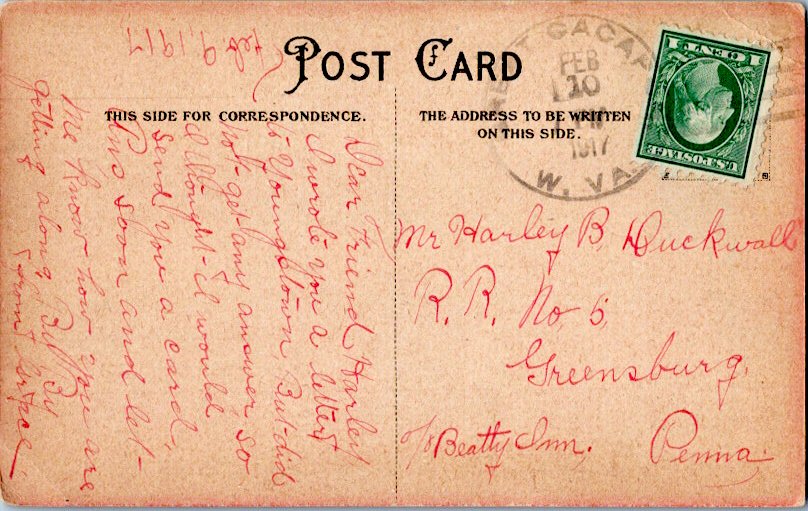 POST CARD
THIS SIDE FOR CORRESPONDENCE.
THE ADDRESS TO BE WRITTEN
ON THIS SIDE.
FEB
10
1917
W. VA.
1 CENT 1
U.S. POSTAGE
Feb 9, 1917
Dear Friend Harley
I wrote you a letter
to Youngstown, But did
not get any answer so
I thought I would
send you a card,
Ans soon and let
me know how you are
getting along By By
from
Mr Harley B. Duckwall
R. R. No, 5,
Greensburg.
c/o Beatty Inn.
Penna.